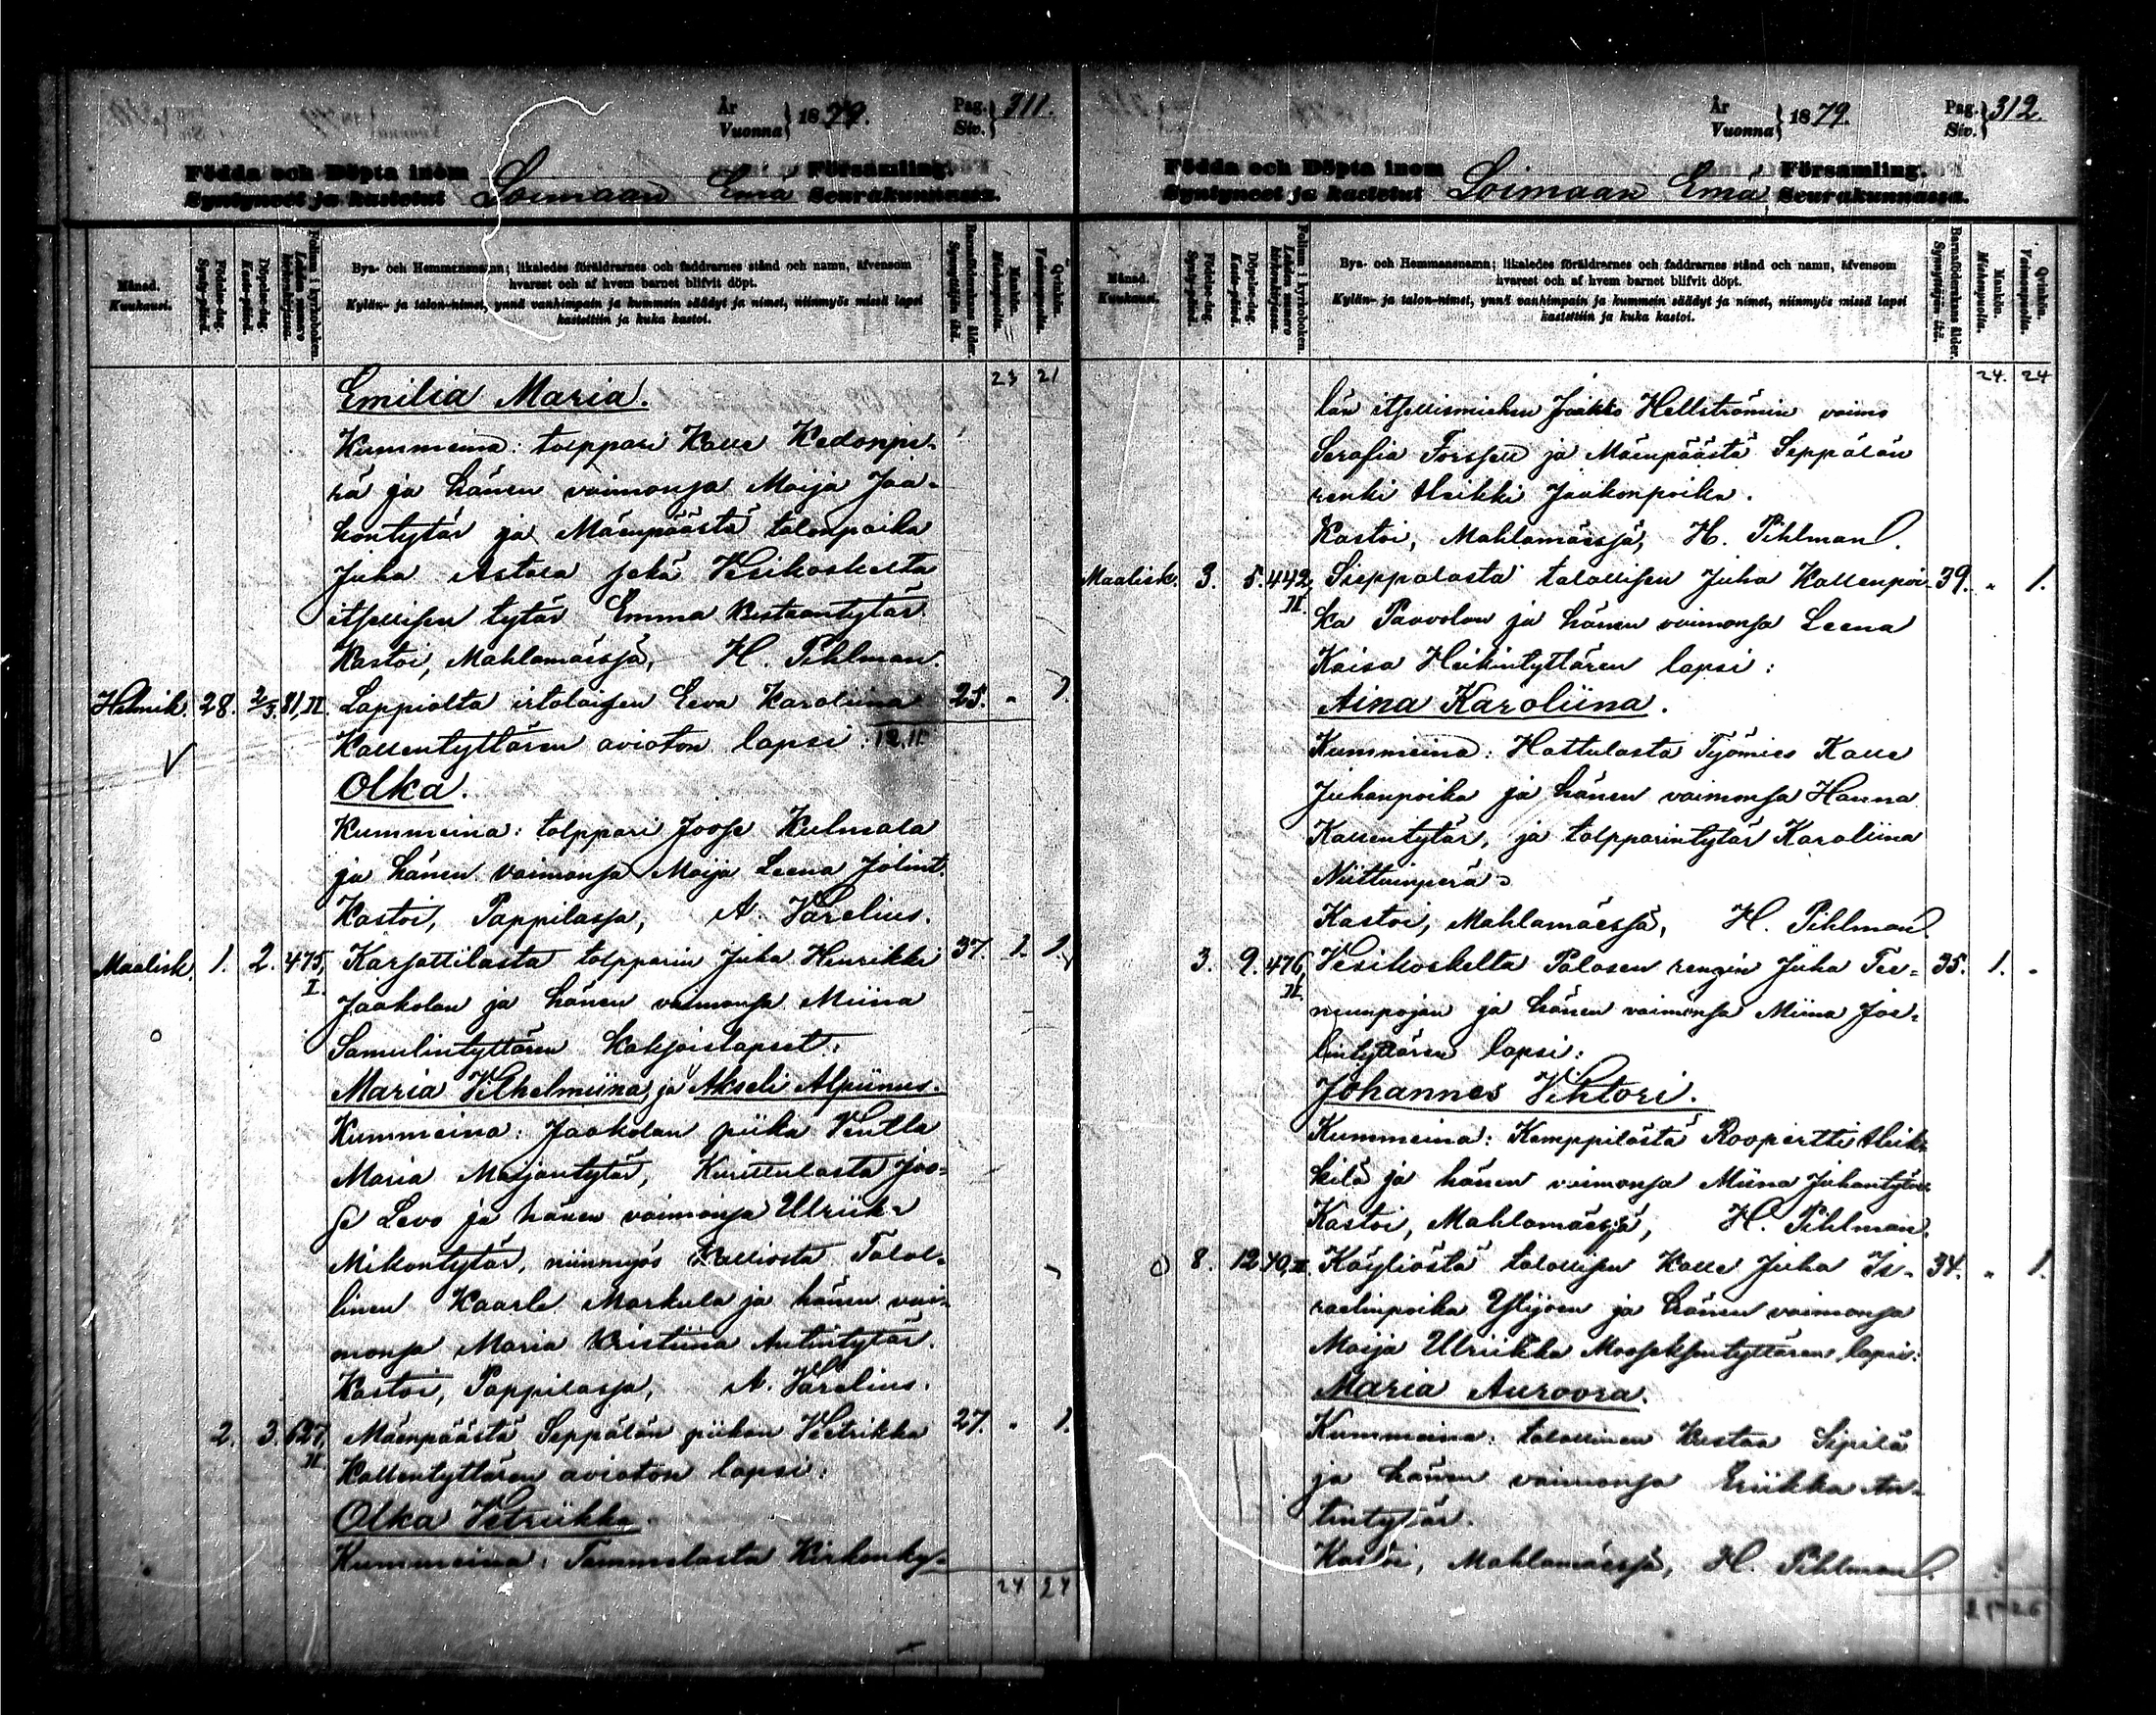 År
Vuonna } 1879.
Pag.
Siv. } 311.
Födda och Döpta inom
Syntyneet ja kastetut Loimaan Emä Församling.
Seurakunnassa.
Månad.
Kuukausi.
Födelse-dag.
Synty-päivä.
Döpelse-dag.
Kaste-päivä.
Folium i kyrkoboken.
Lehden numero kirkonkirjassa.
Bya- och Hemmansnamn; likaledes föräldrarnes och faddrarnes stånd och namn, äfvensom
hvarest och af hvem barnet blifvit döpt.
Kylän- ja talon-nimet, ynnä vanhimpain ja kummein säädyt ja nimet, niinmyös missä lapsi
kastettiin ja kuka kastoi.
Barnaföderskans ålder.
Synnyttäjän ikä.
Mankön.
Miehenpuolia.
Qvinkön.
Vaimonpuolia.
23 21
Emilia Maria.
Kummeina: torppari Kalle Kedonpe-
rä ja hänen vaimonsa Maija Jaa-
kontytär ja Mäenpäästä talonpoika
Juha Astala sekä Vesikoskelta
itsellisen tytär Emma Kustaantytär.
Kastoi, Mahlamäessä, H. Pihlman.
Helmik. 28. 2/3. 81, II. Lappiolta irtolaisen Eeva Karoliina 25. " 1.
Kallentyttären avioton lapsi:
Olka.
Kummeina: torppari Joose Kulmala
ja hänen vaimonsa Maija Leena
Kastoi, Pappilassa, A. Varelius.
Maalisk. 1. 2. 475, I. Karsattilasta torpparin Juha Henrikki 37. 1. 1.
Jaakolan ja hänen vaimonsa Miina
Samulintyttären kaksoislapset:
Maria Vilhelmiina, ja Akseli Alpiinus.
Kummeina: Jaakolan piika Ventla
Maria Marjantytär, Kurittulasta Joo-
se Levo ja hänen vaimonsa Ulriika
Mikontytär, niinmyös Kalliosta Talol-
linen Kaarle Markula ja hänen vai-
monsa Maria Kristiina Antintytär.
Kastoi, Pappilassa, A. Varelius.
2. 3. 627, II. Mäenpäästä Seppälän piikan Vetrikka 27. " 1.
Kallentyttären avioton lapsi:
Olka Vetriikka.
Kummeina: Tammelasta Kirkonky-
24 24
År
Vuonna } 1879.
Pag.
Siv. } 312.
Födda och Döpta inom
Syntyneet ja kastetut Loimaan Emä Församling.
Seurakunnassa.
Månad.
Kuukausi.
Födelse-dag.
Synty-päivä.
Döpelse-dag.
Kaste-päivä.
Folium i kyrkoboken.
Lehden numero kirkonkirjassa.
Bya- och Hemmansnamn; likaledes föräldrarnes och faddrarnes stånd och namn, äfvensom
hvarest och af hvem barnet blifvit döpt.
Kylän- ja talon-nimet, ynnä vanhimpain ja kummein säädyt ja nimet, niinmyös missä lapsi
kastettiin ja kuka kastoi.
Barnaföderskans ålder.
Synnyttäjän ikä.
Mankön.
Miehenpuolia.
Qvinkön.
Vaimonpuolia.
24. 24
län itsellismiehen Jaakko Hellströmin vaimo
Serafia Forssell ja Mäenpäästä Seppälän
renki Heikki Jaakonpoika.
Kastoi, Mahlamäessä, H. Pihlman.
Maalisk. 3. 5. 442, II. Sieppalasta talollisen Juha Kallenpoi- 39. " 1.
ka Paavolan ja hänen vaimonsa Leena
Kaisa Heikintyttären lapsi:
Aina Karoliina.
Kummeina: Hattulasta Työmies Kalle
Juhanpoika ja hänen vaimonsa Hanna
Kallentytär, ja torpparintytär Karoliina
Niittuinperä
Kastoi, Mahlamäessä, H. Pihlman.
3. 9. 476, II. Vesikoskelta Palosen rengin Juha Tee- 35. 1. "
munpojan ja hänen vaimonsa Miina Joe-
lintyttären lapsi:
Johannes Vihtori.
Kummeina: Kemppilästä Roopertti Heik-
kilä ja hänen vaimonsa Miina Juhantytär
Kastoi, Mahlamäessä, H. Pihlman.
8. 12. 40, II. Käyliöstä talollisen Kalle Juha Is- 34. " 1.
raelinpoika Ylijoen ja hänen vaimonsa
Maija Ulriikka Mooseksentyttären lapsi:
Maria Auroora.
Kummeina: talollinen Kustaa Sipilä
ja hänen vaimonsa Eriikka An-
tintytär.
Kastoi, Mahlamäessä, H. Pihlman.